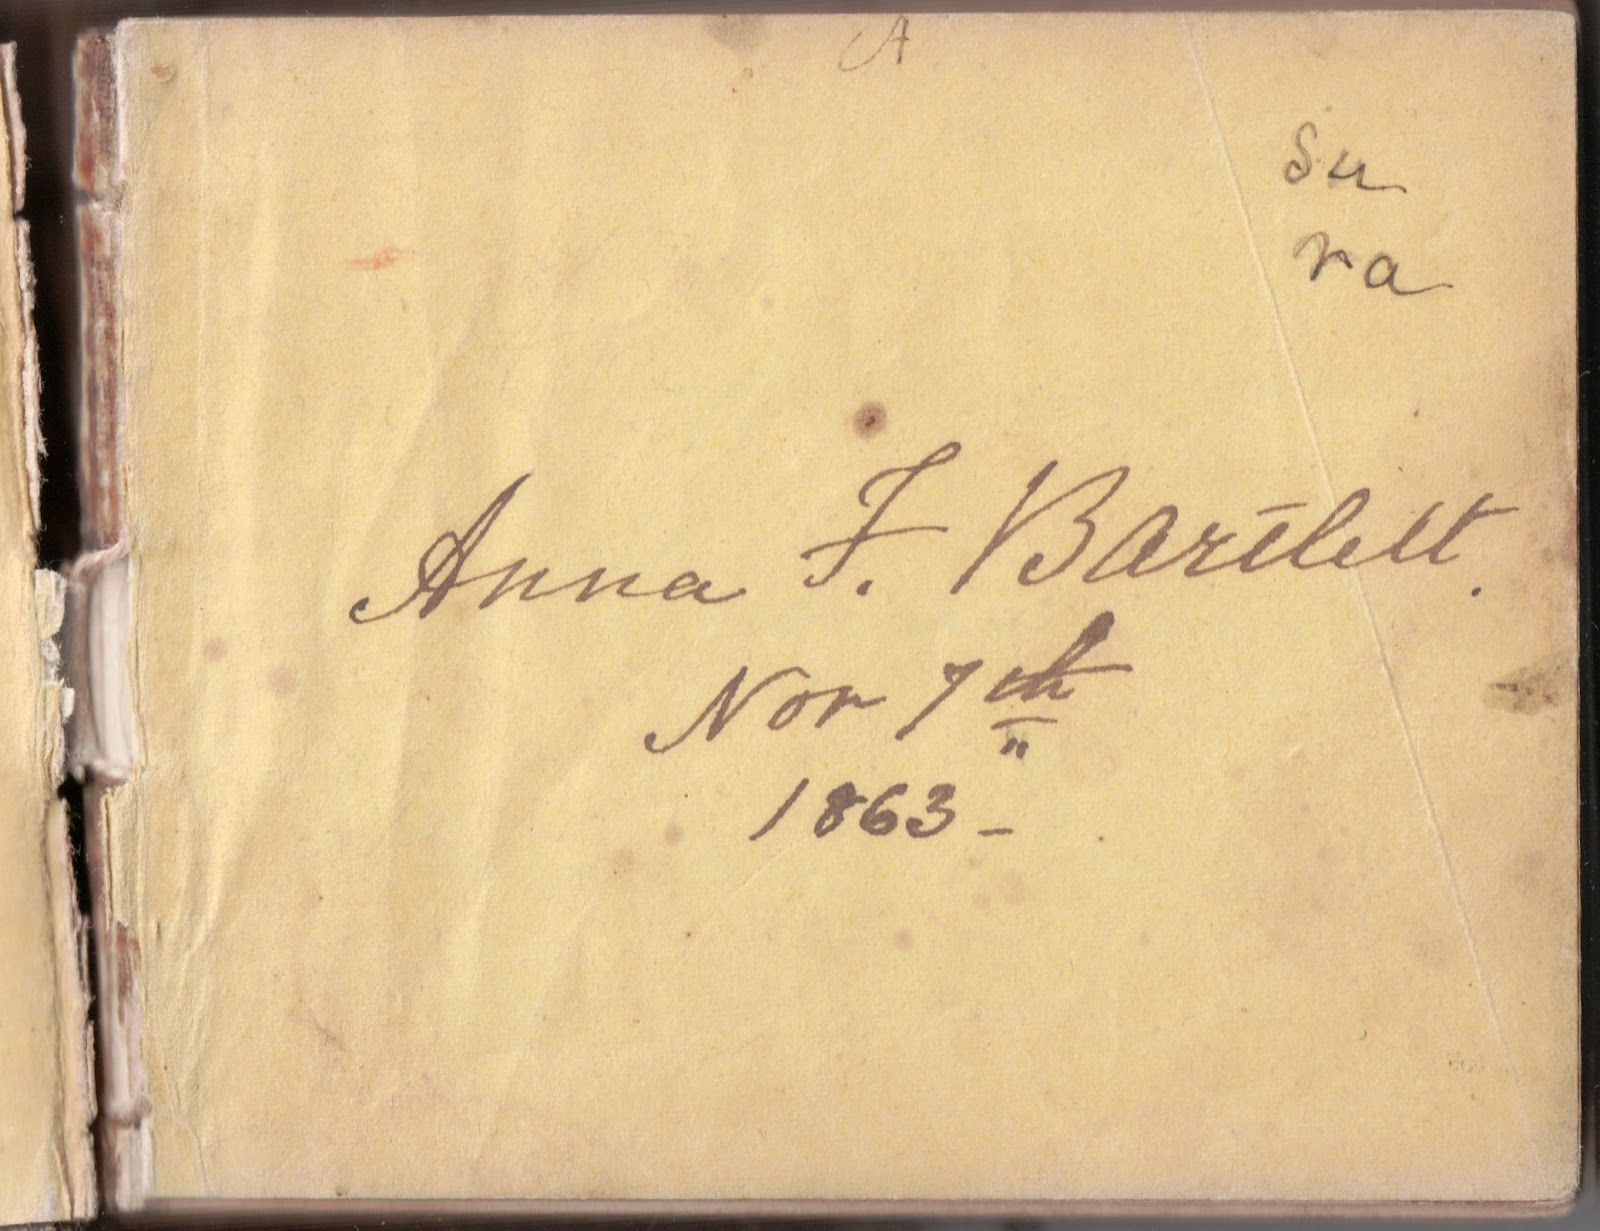 A
Su
ra
Anna F. Bartlett.
Nov 7th
1863 -